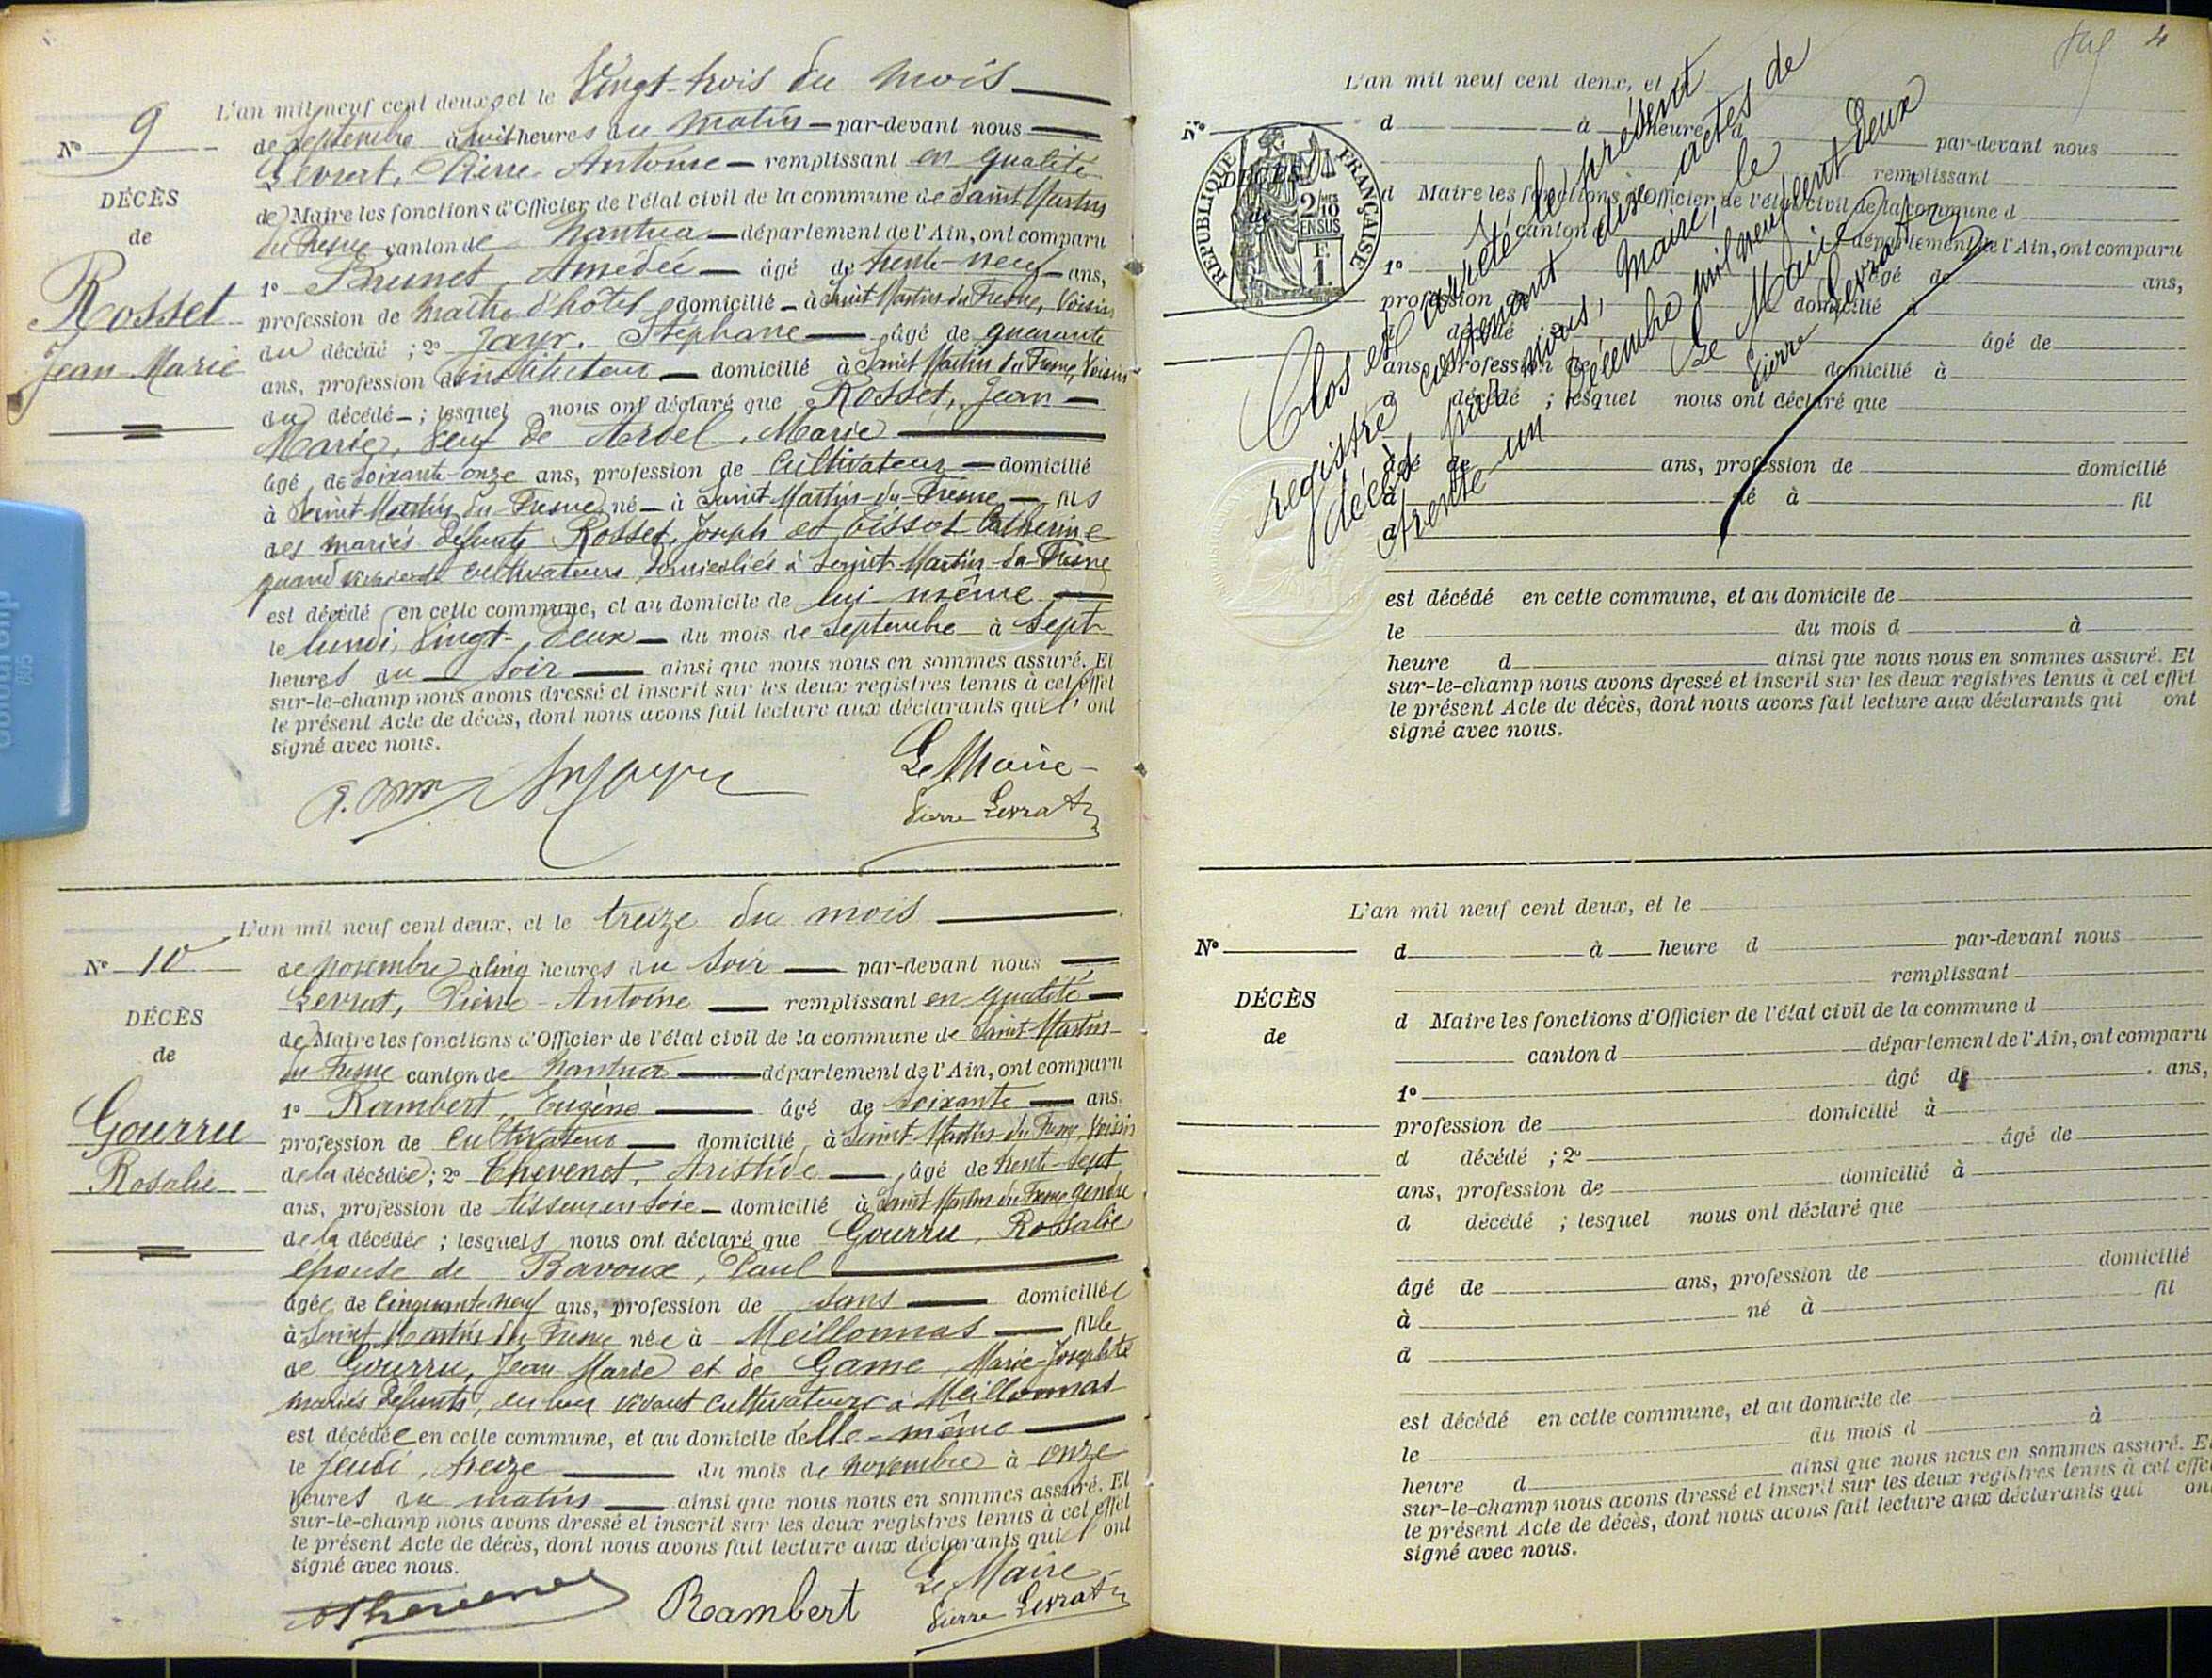 L'an mil neuf cent deux, et le Vingt-trois du mois
de Septembre à huit heures du matin par-devant nous
Levrat, Pierre-Antoine remplissant en qualité
de Maire les fonctions d'Officier de l'état civil de la commune de Saint Martin
du Fresne canton de Nantua département de l'Ain, ont comparu
1° Brunet, Amédée âgé de trente-neuf ans,
profession de Maître d'hôtel domicilié à Saint Martin du Fresne, Voisin
du décédé ; 2° Jayr, Stéphane âgé de quarante
ans, profession d'instituteur domicilié à Saint Martin du Fresne, Voisin
du décédé ; lesquel nous ont déclaré que Rosset, Jean
Marie, veuf de Marie
âgé de soixante-onze ans, profession de Cultivateur domicilié
à Saint Martin du Fresne né à Saint-Martin-du-Fresne fils
des mariés défunts Rosset, Joseph et Bissot Catherine
quand cultivateurs domiciliés à Saint-Martin-du-Fresne
est décédé en cette commune, et au domicile de lui même
le lundi, Vingt-deux du mois de Septembre à Sept
heures du soir ainsi que nous nous en sommes assuré. Et
sur-le-champ nous avons dressé et inscrit sur les deux registres tenus à cet effet
le présent Acte de décès, dont nous avons fait lecture aux déclarants qui l'ont
signé avec nous.
Le Maire
Pierre Levrat
N° 9
DÉCÈS
de
Rosset
Jean Marie
L'an mil neuf cent deux, et le treize du mois
de novembre à Cinq heures du soir par-devant nous
Levrat, Pierre-Antoine remplissant en qualité
de Maire les fonctions d'Officier de l'état civil de la commune de Saint Martin-
du Fresne canton de Nantua département de l'Ain, ont comparu
1° Rambert, Eugène âgé de soixante ans,
profession de Cultivateur domicilié à Saint Martin-du-Fresne, Voisin
de la décédée ; 2° Thevenet, Aristide âgé de trente-sept
ans, profession de tisseur en soie domicilié à Saint Martin du Fresne gendre
de la décédée ; lesquels nous ont déclaré que Gourru, Rosalie
épouse de Bavoux, Paul
âgée de Cinquante neuf ans, profession de sans domiciliée
à Saint Martin du Fresne née à Meillonnas fille
de Gourru, Jean Marie et de Game, Marie-Josephte
mariés défunts, en leur vivant cultivateurs à Meillonnas
est décédée en cette commune, et au domicile d'elle-même
le jeudi, treize du mois de novembre à onze
heures du matin ainsi que nous nous en sommes assuré. Et
sur-le-champ nous avons dressé et inscrit sur les deux registres tenus à cet effet
le présent Acte de décès, dont nous avons fait lecture aux déclarants qui l'ont
signé avec nous.
Thevenet Rambert Le Maire
Pierre Levrat
N° 10
DÉCÈS
de
Gourru
Rosalie
4
L'an mil neuf cent deux, et
N°
d à heure d par-devant nous
remplissant
d Maire les fonctions d'Officier de l'état civil de la commune d
canton d département de l'Ain, ont comparu
1° âgé de ans,
profession de domicilié à
d décédé ; 2° âgé de
ans, profession de domicilié à
d décédé ; lesquel nous ont déclaré que
âgé de ans, profession de domicilié
à né à fil
d
est décédé en cette commune, et au domicile de
le du mois d à
heure d ainsi que nous nous en sommes assuré. Et
sur-le-champ nous avons dressé et inscrit sur les deux registres tenus à cet effet
le présent Acte de décès, dont nous avons fait lecture aux déclarants qui ont
signé avec nous.
DÉCÈS
de
RÉPUBLIQUE FRANÇAISE
2/10 MES
EN SUS
F.
1.
Clos et arrêté le présent
registre contenant dix actes de
décès par nous, Maire, le
trente-un Décembre mil neuf cent deux
Le Maire
Pierre Levrat
L'an mil neuf cent deux, et le
N°
DÉCÈS
de
d à heure d par-devant nous
remplissant
d Maire les fonctions d'Officier de l'état civil de la commune d
canton d département de l'Ain, ont comparu
1° âgé de ans,
profession de domicilié à
d décédé ; 2° âgé de
ans, profession de domicilié à
d décédé ; lesquel nous ont déclaré que
âgé de ans, profession de domicilié
à né à fil
d
est décédé en cette commune, et au domicile de
le du mois d à
heure d ainsi que nous nous en sommes assuré. Et
sur-le-champ nous avons dressé et inscrit sur les deux registres tenus à cet effet
le présent Acte de décès, dont nous avons fait lecture aux déclarants qui ont
signé avec nous.